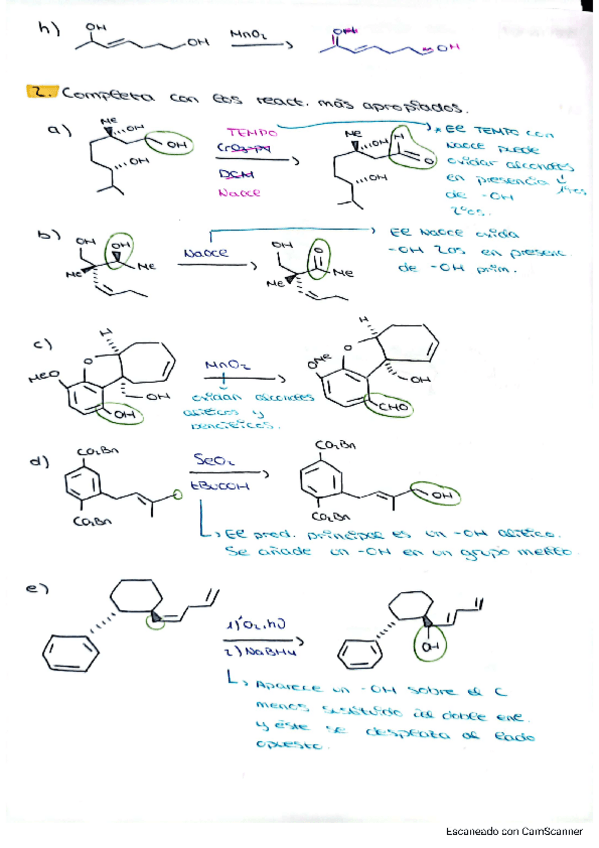 h) OH OH MnO₂ OH
2. Completa con los react. más apropiados.
a) Me OH OH OH TEMPO CrO₃·py DCM NaOCl Me OH H O OH
* El TEMPO con
NaOCl puede
oxidar alcoholes
en presencia
1ºes
de -OH
2ºes.
b) OH OH Me Me NaOCl OH O Me Me
El NaOCl oxida
-OH 2os en presenc.
de -OH prim.
c) H O MeO OH OH MnO₂ H O OMe OH CHO
oxidan alcoholes
alílicos y
bencílicos.
d) CO₂Bn CO₂Bn SeO₂ tBuOOH CO₂Bn OH CO₂Bn
El prod. principal es un -OH alílico.
Se añade un -OH en un grupo metilo
e) 1) ¹O₂, hν OH
2) NaBH₄
Aparece un -OH sobre el C
menos sustituido del doble enl.
y éste se desplaza al lado
opuesto.
Escaneado con CamScanner